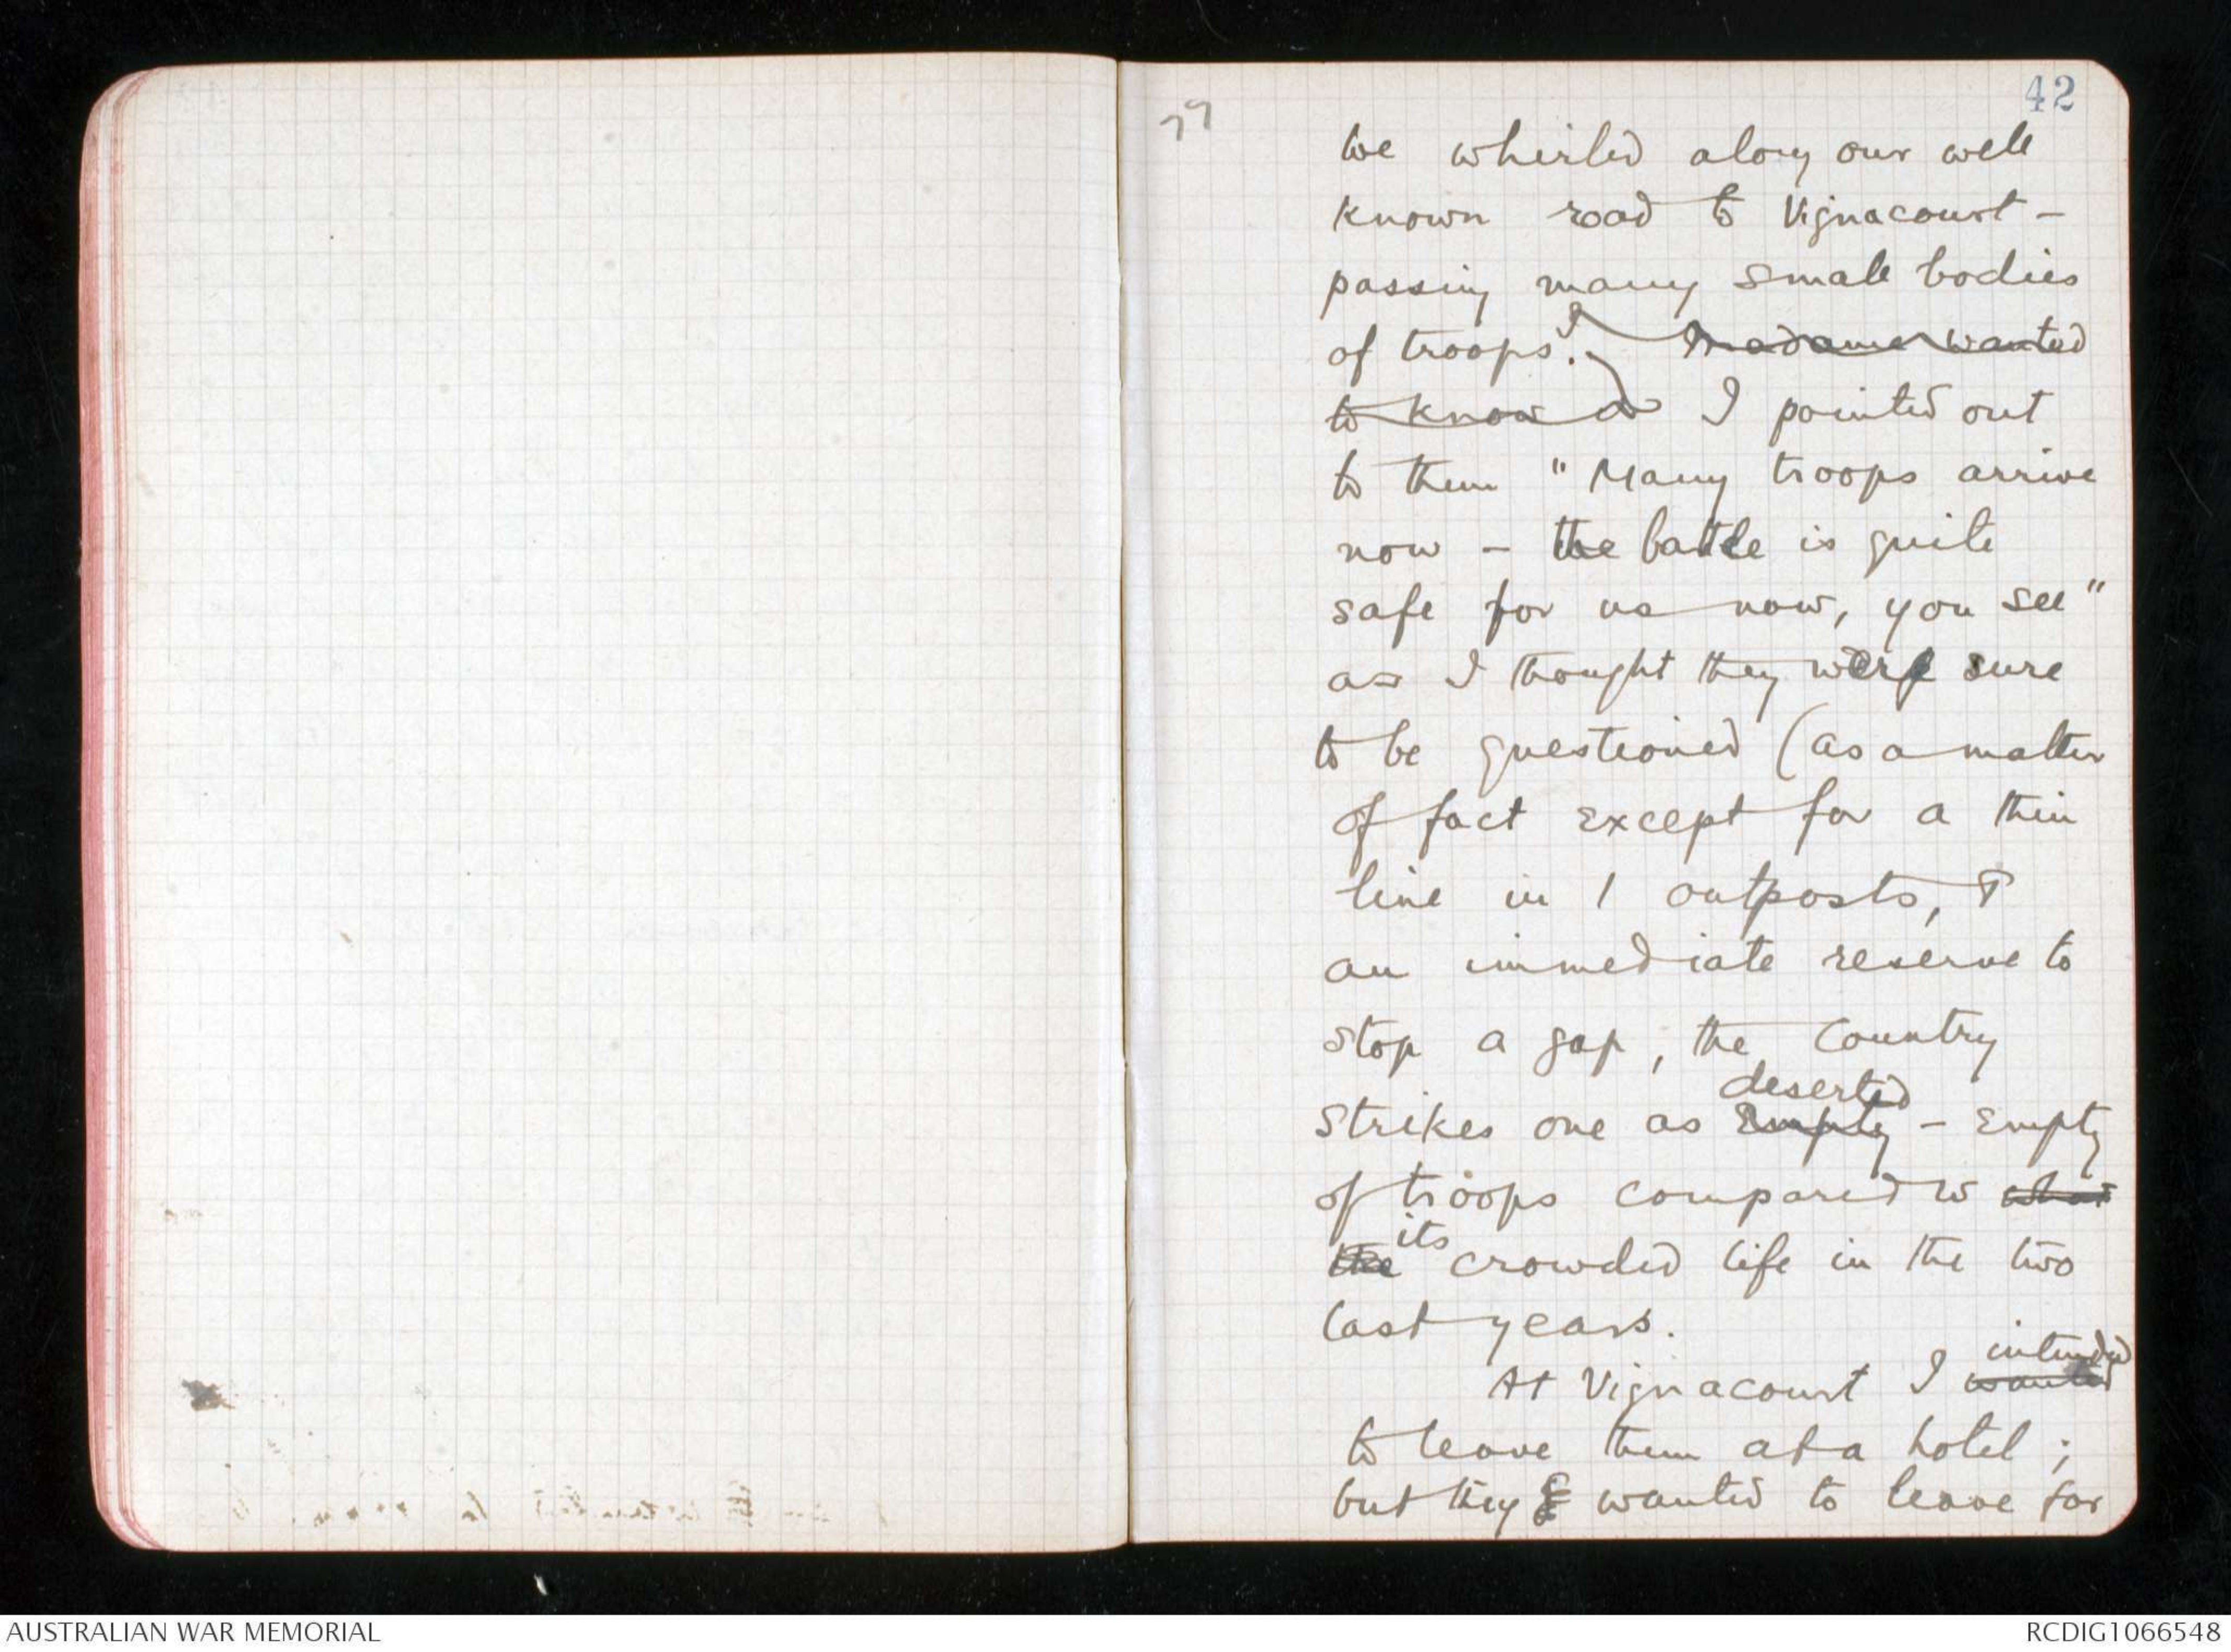 42
77
we whirled along our well
known road to Vignacourt -
passing many small bodies
of troops. Madame wanted
to know a I pointed out
to them "Many troops arrive
now - the battle is quite
safe for us now, you see"
as I thought they were sure
to be questioned (as a matter
of fact except for a thin
line in / outposts, &
an immediate reserve to
stop a gap, the country
deserted
strikes one as empty - empty
of troops compared w what
the its crowded life in the two
last years.
intended
At Vignacourt I wanted
to leave them at a hotel;
but they wanted to leave for
AUSTRALIAN WAR MEMORIAL
RCDIG1066548